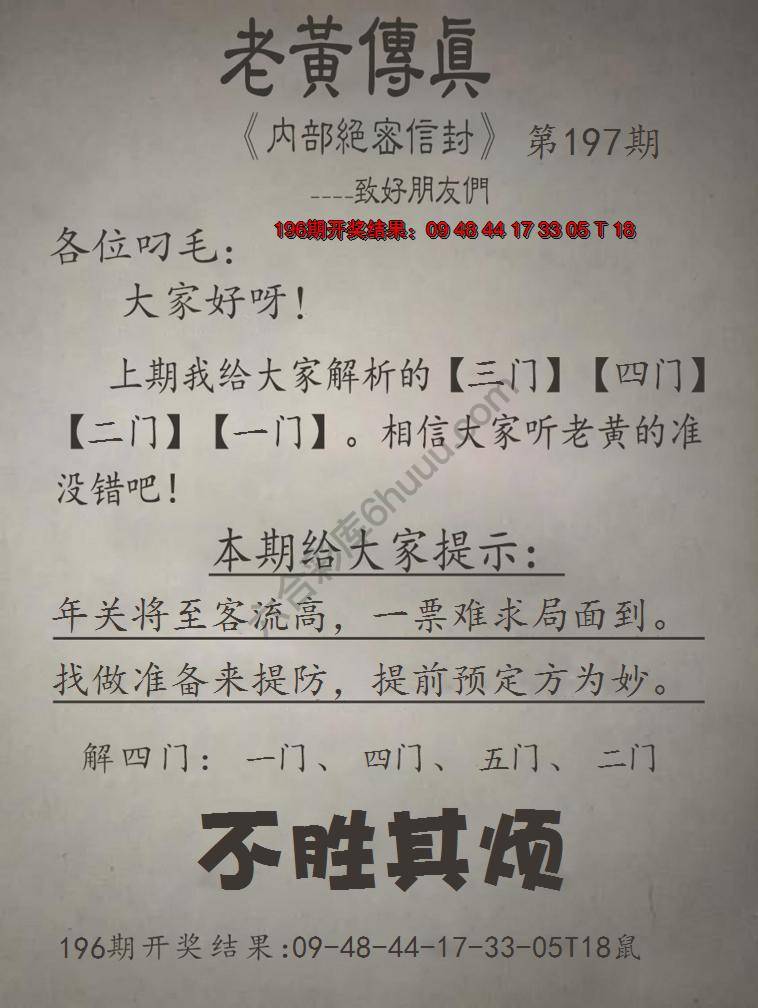 老黃傳眞
《内部絕密信封》 第197期
----致好朋友們
196期开奖结果：09 48 44 17 33 05 T 18
各位叼毛：
大家好呀！
上期我给大家解析的【三门】【四门】
【二门】【一门】。相信大家听老黄的准
没错吧！
六合彩库6huuu.com
本期给大家提示：
年关将至客流高，一票难求局面到。
找做准备来提防，提前预定方为妙。
解四门：一门、四门、五门、二门
不胜其烦
196期开奖结果:09-48-44-17-33-05T18鼠